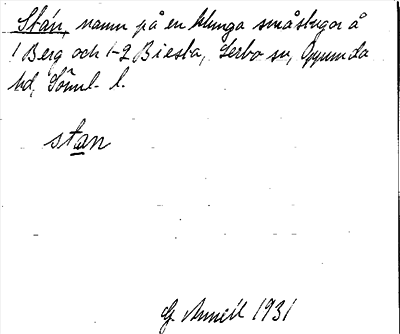 Stan, namn på en klunga småstugor å
1 Berg och 1-2 Biesta, Lerbo sn, Oppunda
hd, Söml. l.
stan
G Annell 1931